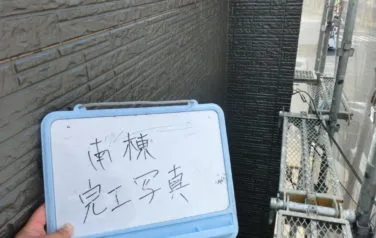 南棟
完工写真